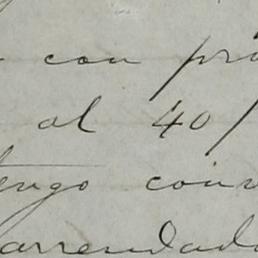 con pr
al 40/
tengo con
arrendado